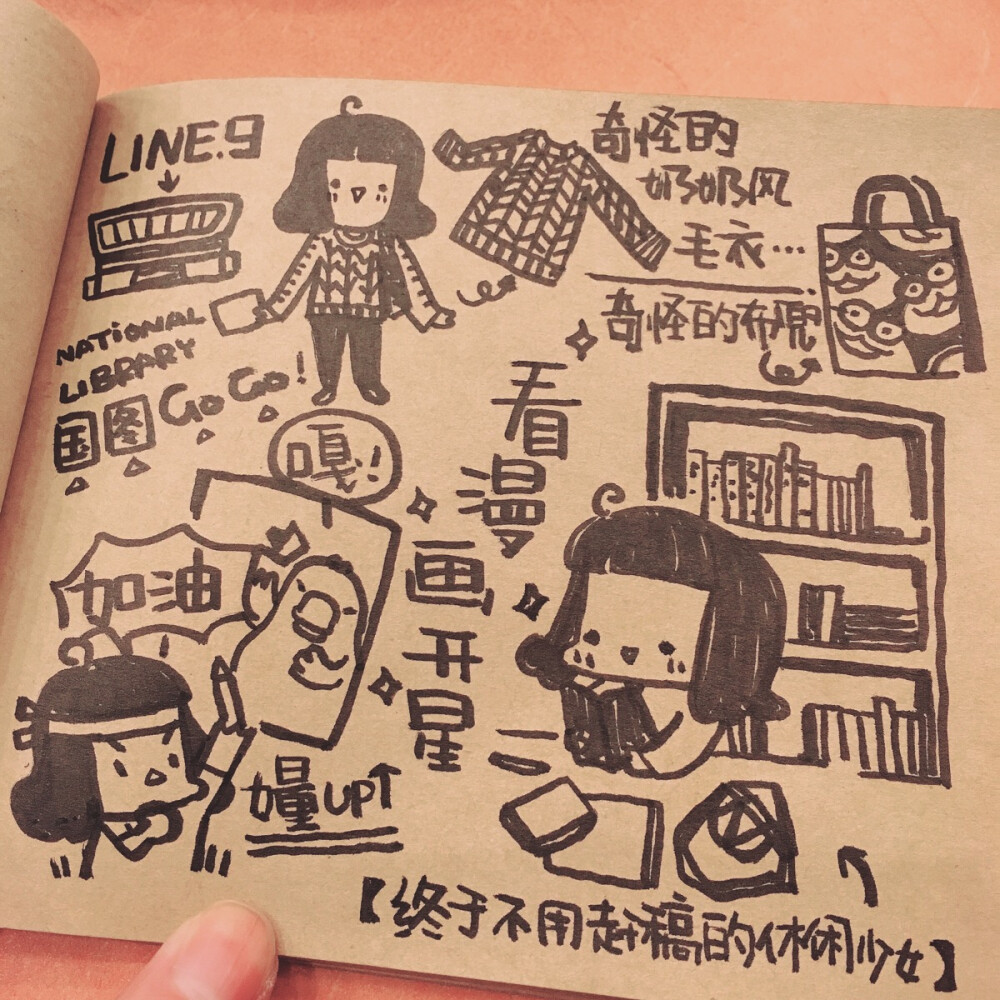 LINE.9
NATIONAL
LIBRARY
国图GO GO!
奇怪的
奶奶风
毛衣…
奇怪的布兜
嘎!
加油
UP↑
看漫画开星
【终于不用赶稿的休闲少女】